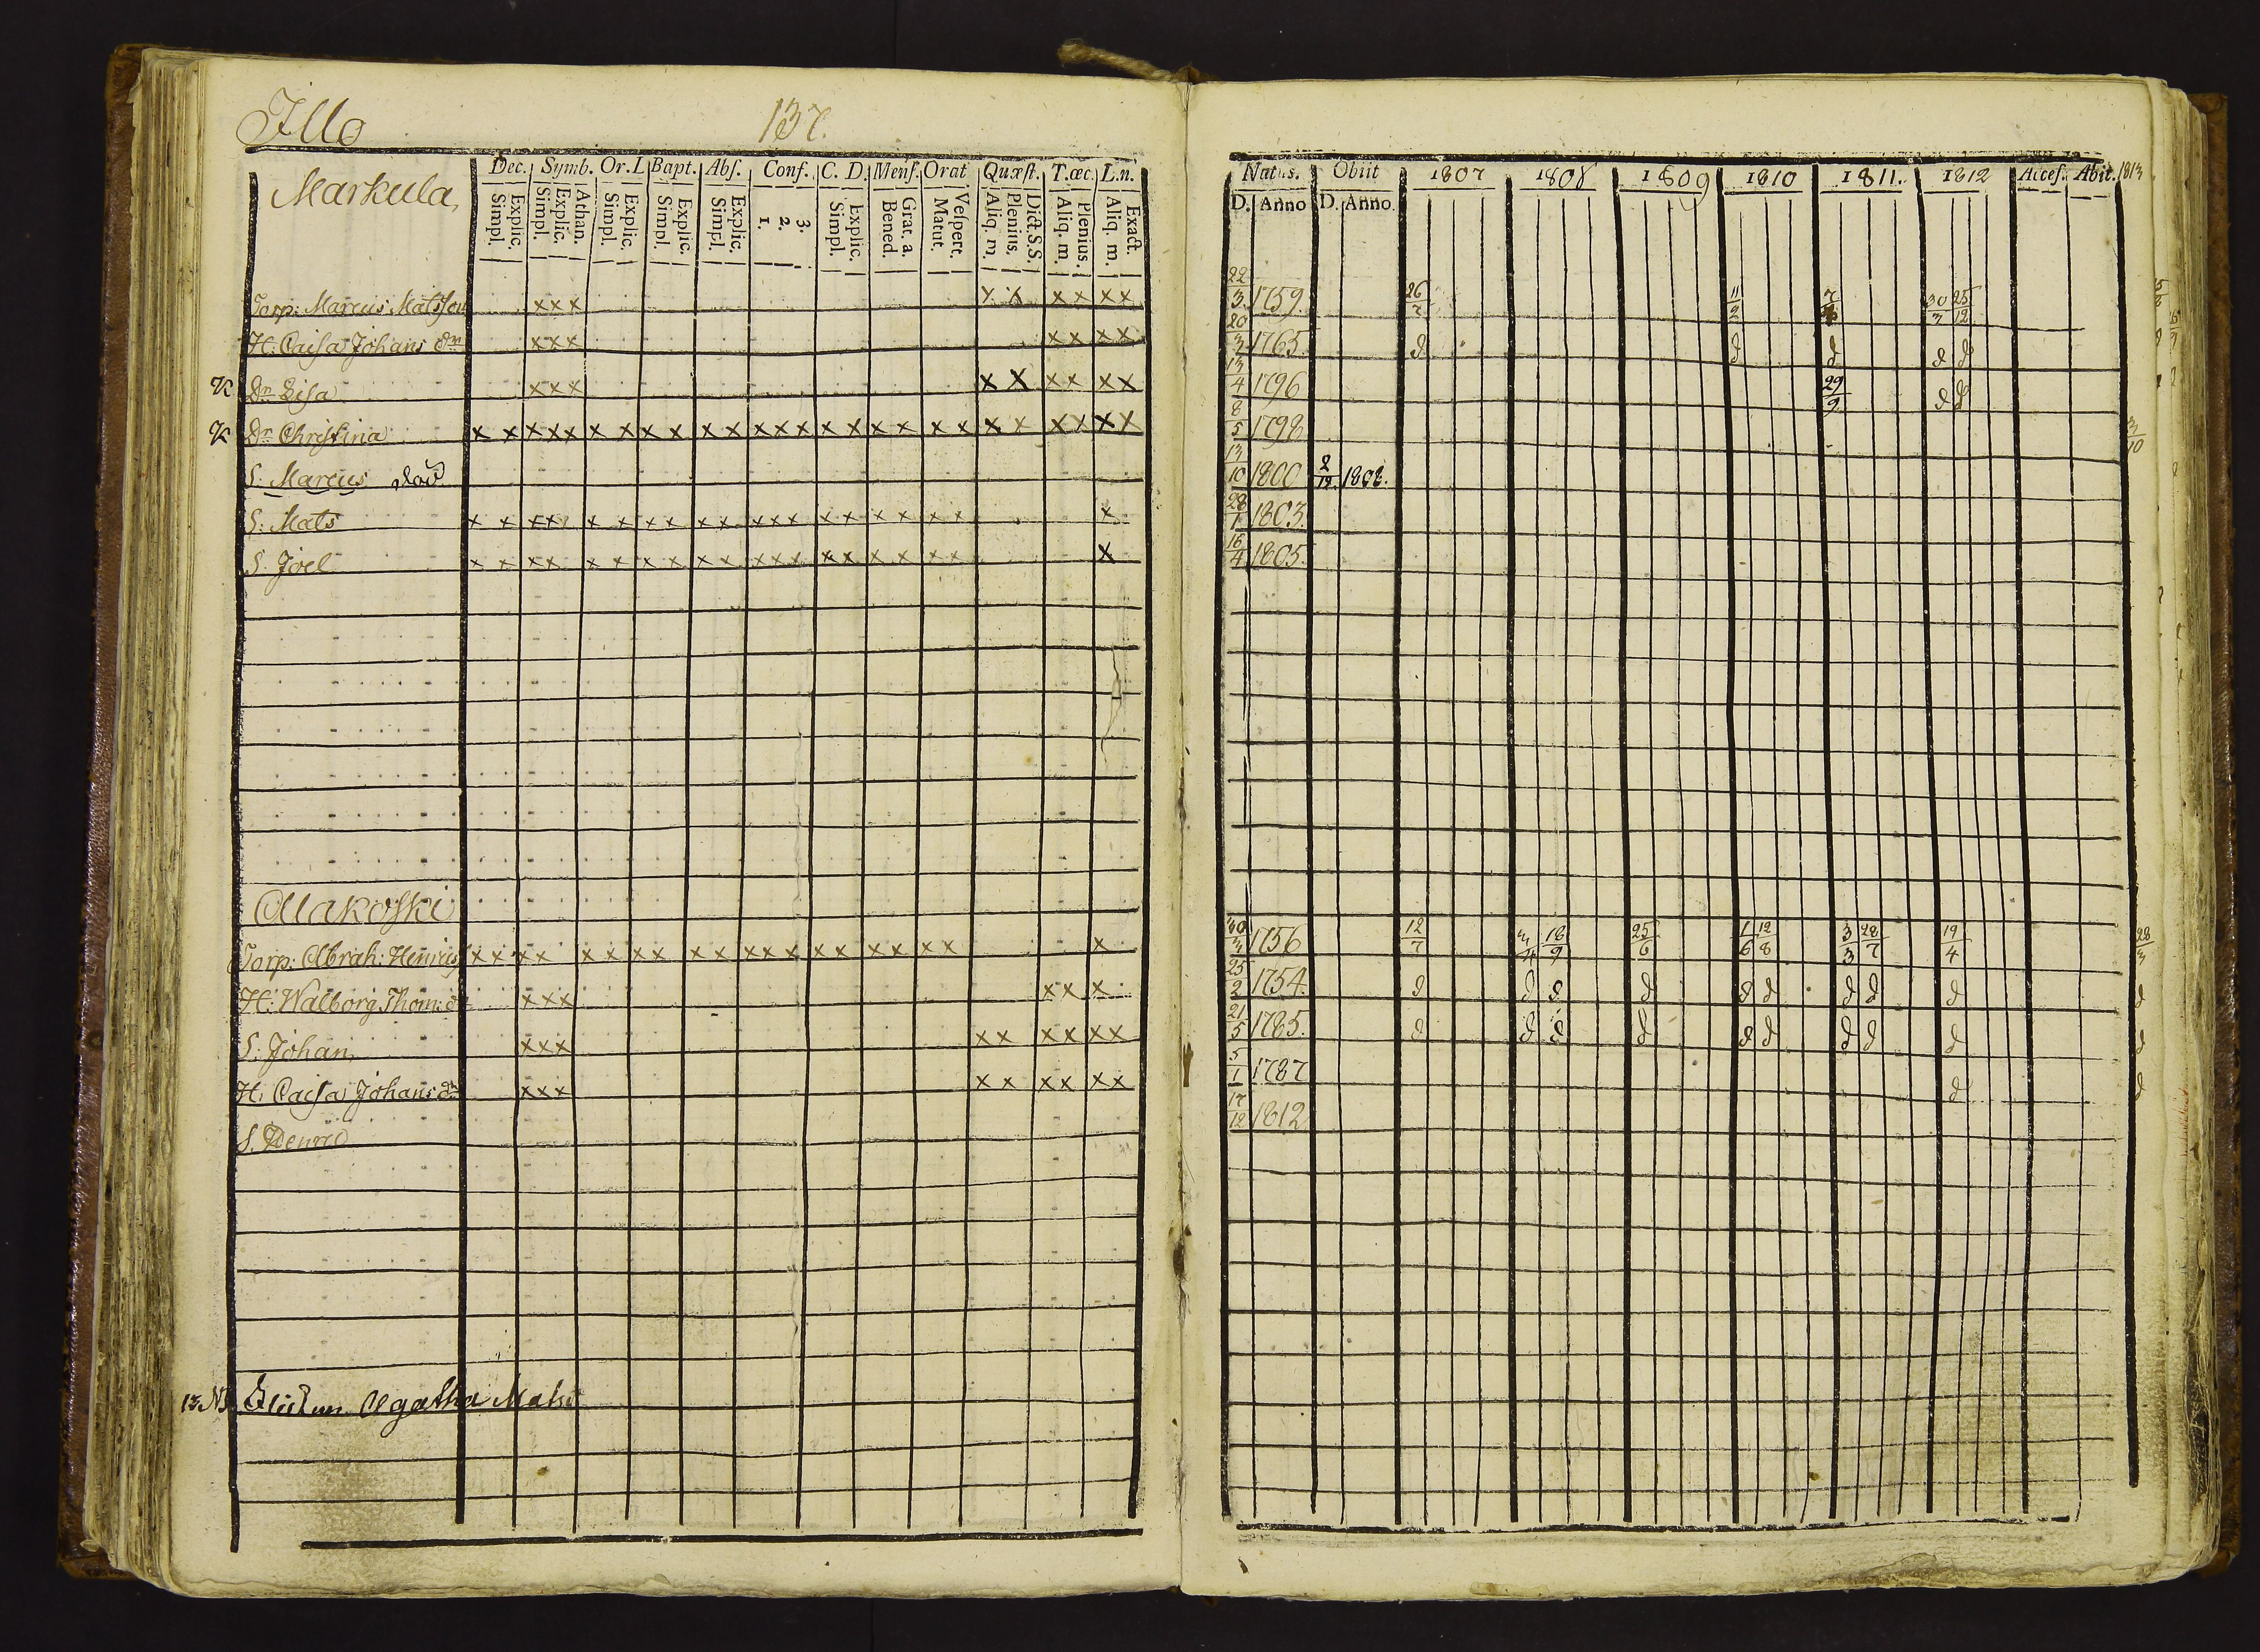 Illo 137.
Dec. Symb. Or.L Bapt. Abſ. Conf. C. D. Menſ. Orat Quæſt. T.œc. L.n.
Markula,
Explic. Simpl. Athan. Explic. Simpl. Explic. Simpl. Explic. Simpl. Explic. Simpl. 3. 2. 1. Explic. Simpl. Grat. a. Bened. Veſpert. Matut. Dict.S.S. Plenius. Aliq. m. Plenius. Aliq. m. Exact. Aliq. m.
Torp: Marcus Matsson xxx x x xx xx
H: Caisa Johans dr xxx xx xx
Dr Lisa xxx x x xx xx
Dr Christina x x xxx x x xx xx xxx xx xx xx x x xx xx
S: Marcus död
S: Mats x x xxx x x xx xx xxx xx xx xx x
S. Joel x x xx x x xx xx xxx xx xx xx x
Makoski
Torp: Abrah: Henrics xx xx xx xx xx xxx xx xx xx x
H: Walborg Thom: dr xxx xx x
S: Johan xxx xx xx xx
H: Caisa Johans dr xxx xx xx xx
S. Henric
Agatha Mats
Natus. Obiit 1807 1808 1809 1810 1811. 1812 Acceſ. Abit. 1813
D. Anno D. Anno.
22/3 1759. 26/7 11/2 30/3 25/12
20/3 1763. d d d d d
13/4 1796 29/9 d d
8/5 1798 3/10
13/10 1800 2/12 1808.
28/1 1803.
16/4 1805.
30/3 1756 12/7 3/4 18/9 25/6 1/6 12/8 3/3 28/7 19/4 28/3
25/2 1754. d d d d d d d d d d
21/5 1785. d d d d d d d d d d
5/1 1787 d d
17/12 1812